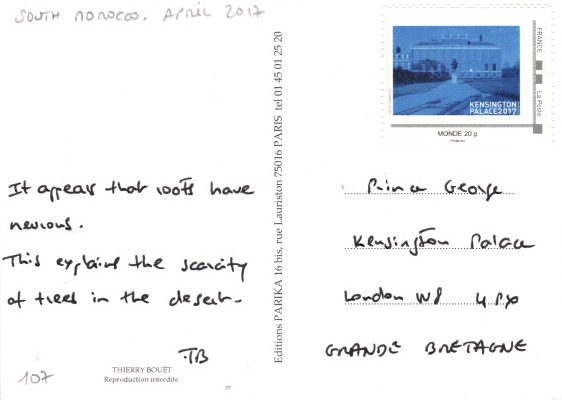 SOUTH MOROCCO. APRIL 2017
It appears that roots have
nevious.
This explains the scarcity
of trees in the desert.
TB
107
THIERRY BOUËT
Reproduction interdite
Editions PARIKA 16 bis, rue Lauriston 75016 PARIS tel 01 45 01 25 20
FRANCE
La Poste
KENSINGTON
PALACE2017
MONDE 20 g
Prince George
Kensington Palace
London W8 4PX
GRANDE BRETAGNE